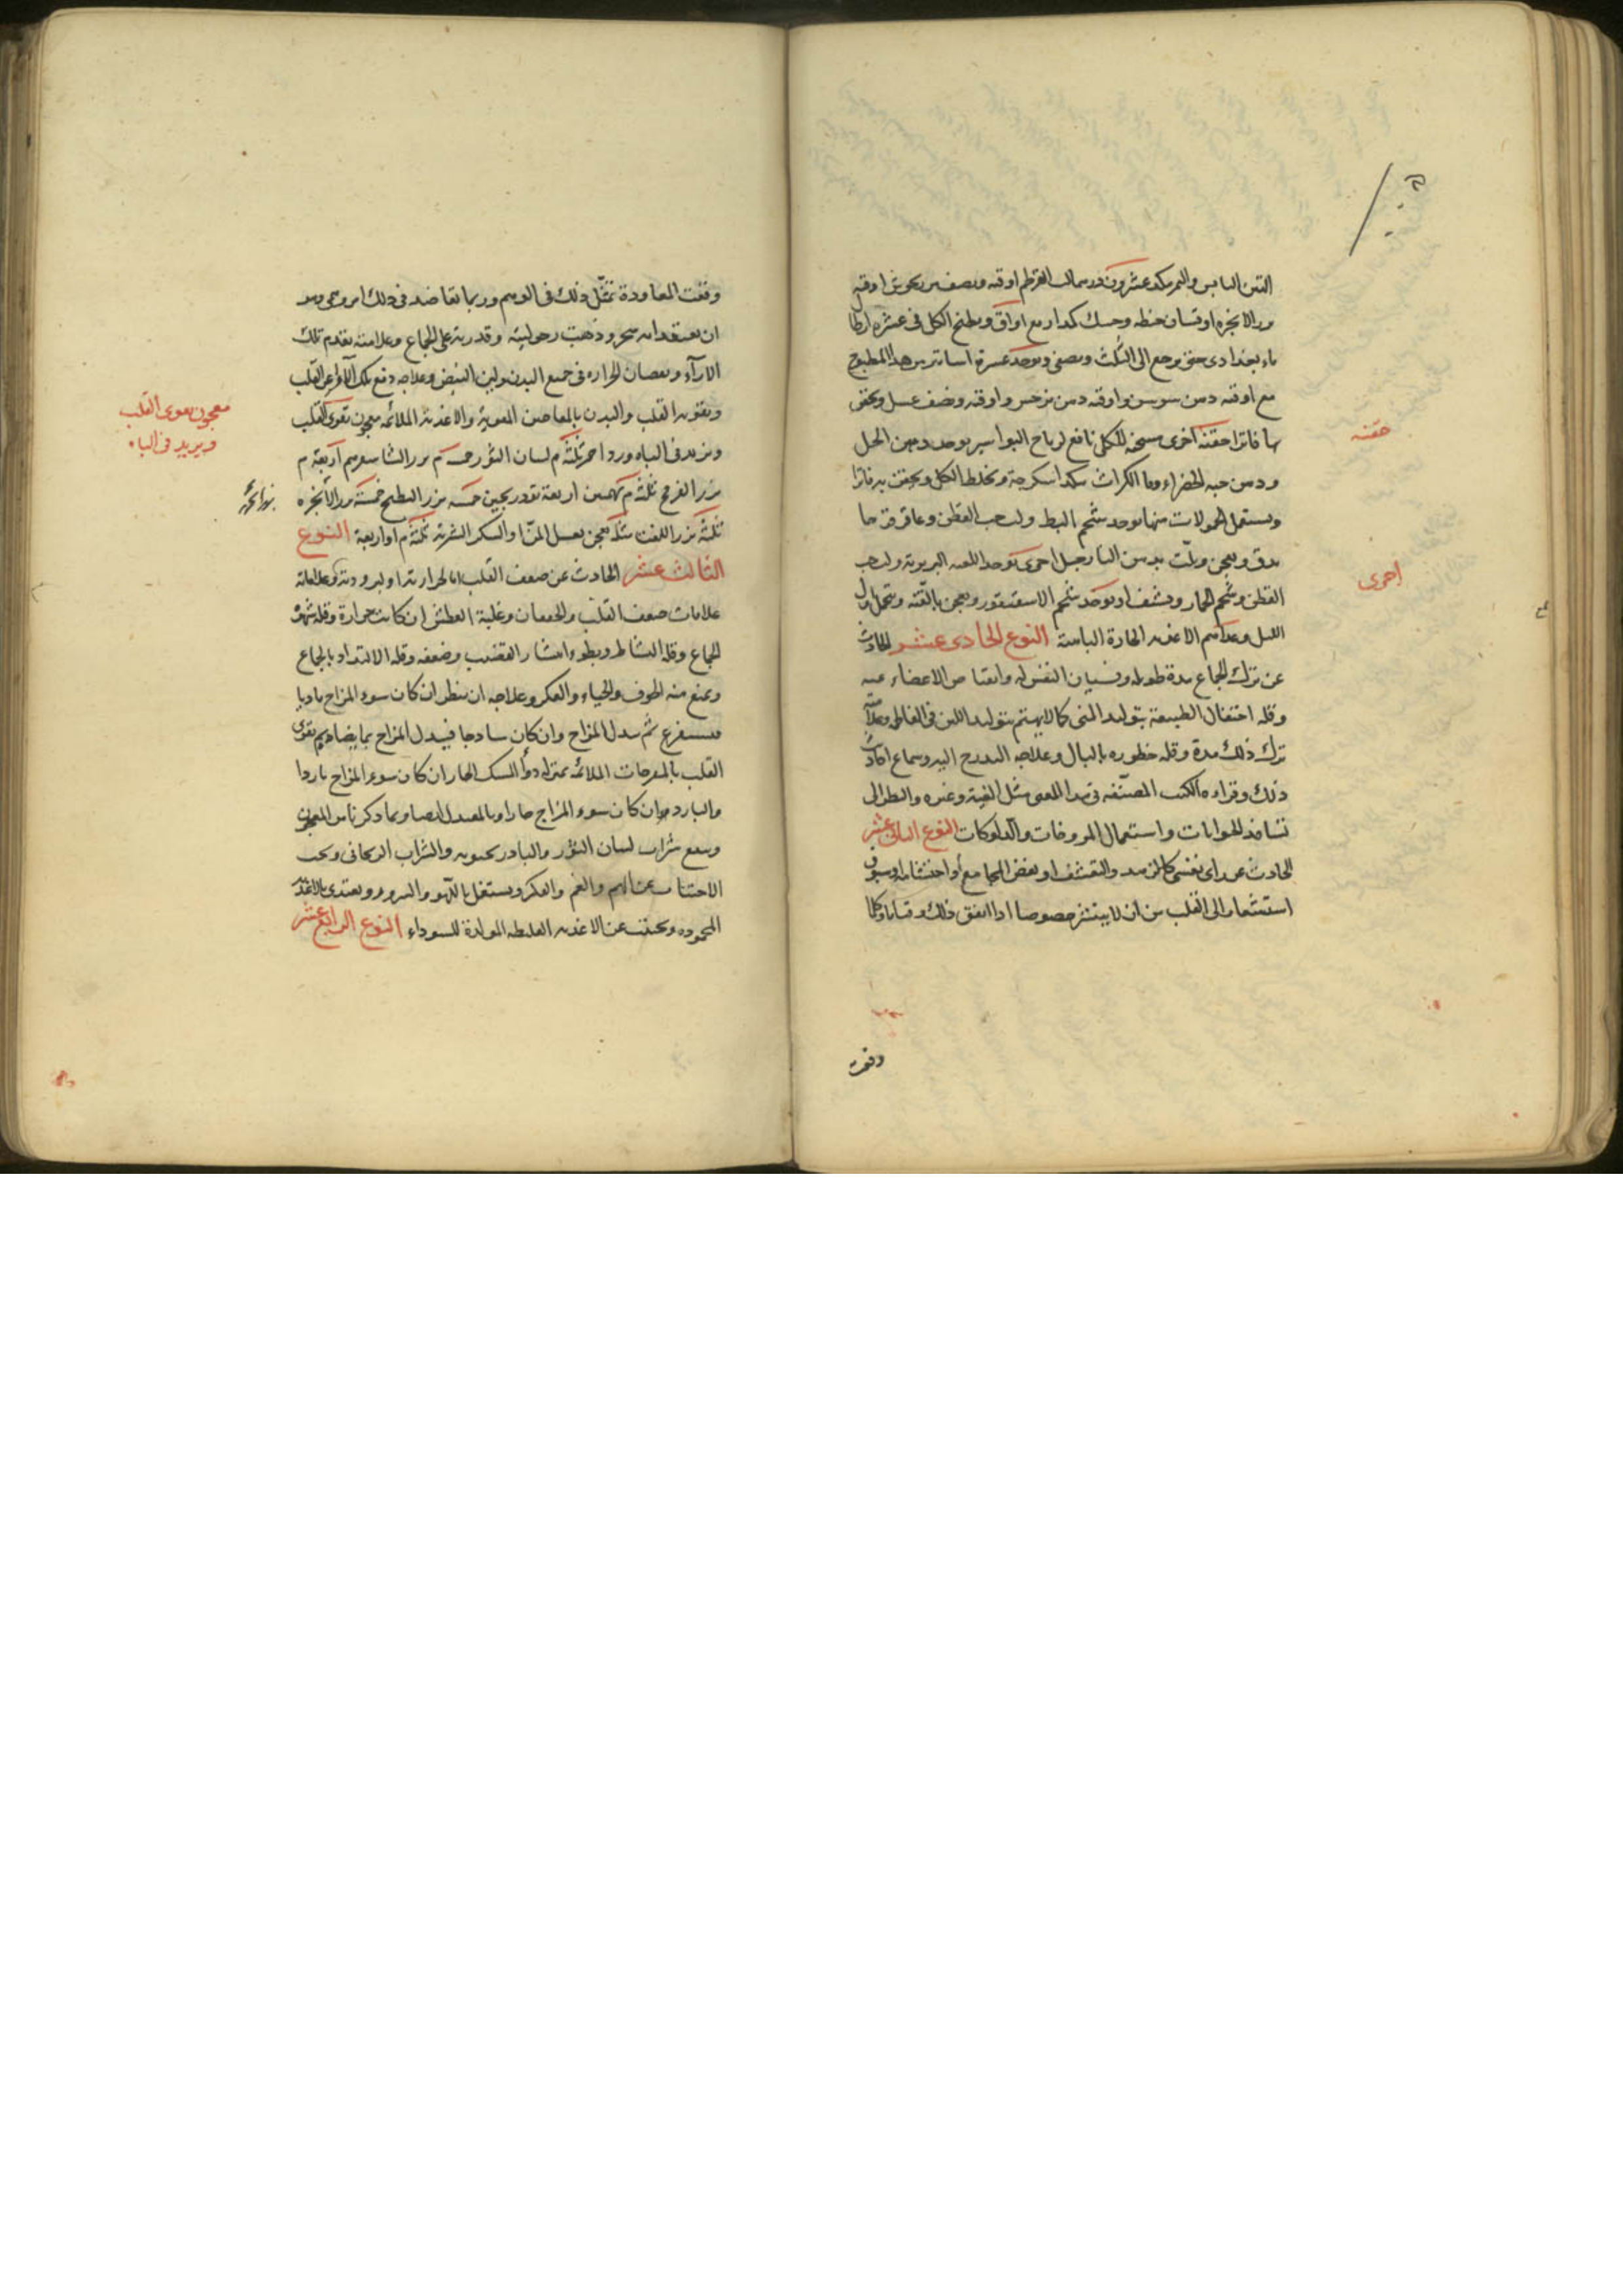 حقنه
اخرى
التين اليابس والتمر مكد عشرون عدد سمالب القرطم اوقيه ونصف اوقيه
بزر الانجره اوقيتان حنطه وحسك كمدار مع اواق ويطبخ الكل فى عشره ارطال
ماء بغدادى حتى يرجع الى الثلث ويصفى ويوخد عشرة اساتير من هذا المطبوخ
مع اوقيه دهن سوسن واوقيه دهن نرجس واوقيه ونصف عسل ويحقن
بها فاترا حقنة اخرى مسخنه للكلى نافع لرياح البواسير يوخد دهن الحل
ودهن حبه الخضراء وما الكراث مكد اسكرجة ويخلط الكل ويحقن به فاترا
ويستعمل الحمولات منها يوخد شحم البط ولب حب القطن وعاقرقرحا
يدق ويعجن ويلت بدهن النارجيل اخرى يوخد اللعبه البربرية ولب حب
القطن وشحم الحمار وينشف او يوخد شحم الاسقنقور ويعجن بالقنه ويتحمل اول
الليل وغداهم الاغذيه الحارة اليابسة النوع الحادى عشر الحادث
عن ترك الجماع مدة طويله ونسيان النفس له وانقباض الاعضاء عنه
وقله احتفال الطبيعة بتوليد المنى كما لا يهتم بتوليد اللبن فى الفاطم وعلامته
ترك ذلك مدة وقله خطوره بالبال وعلاجه التدرج اليه وسماع احاديث
ذلك وقراءه الكتب المصنفه فى هذا المعنى مثل الفية وغيره والنظر الى
تسافد الحيوانات واستعمال المروخات والدلوكات النوع الثانى عشر
الحادث عن راى نفسى كالتزهد والتقشف او بغض المجامع أو احتشامه او سبوق
استشعار الى القلب من ان لا ينتشر خصوصا اذا اتفق ذلك وقتا ما وكلما
وقعت
وقعت المعاودة تمثل ذلك فى الوهم وربما تعاضد فى ذلك امر وهمى وهو
ان يعتقد انه سحر وذهبت رجوليته وقدرته على الجماع وعلامته تقدم تلك
الآراء ونقصان الحراره فى جميع البدن ولين النبض وعلاجه دفع تلك الآراء عن القلب
وتقويه القلب والبدن بالمعاجين المقوية والاغذية الملائمه معجون يقوى القلب
ويزيد فى الباه ورد احمر ثلثة م لسان الثور خمسه م بزر الشاهسفرم اربعة م
بزر الفرنج ثلثه م بهمنين اربعة تودريحين خمسه بزر البطيخ خمسة بزر الانجره
ثلثة بزر اللفت مثله يعجن بعسل المن او السكر الشربة ثلثة م او اربعة النوع
الثالث عشر الحادث عن ضعف القلب اما لحرارته او لبرودته وعلاماته
علامات ضعف القلب والخفقان وغلبة العطش ان كانت حرارة وقله شهوة
الجماع وقله النشاط وبطوء انتشار القضيب وضعفه وقله الالتذاذ بالجماع
ويمنع منه الخوف والحياء والفكر وعلاجه ان ينظر ان كان سوء المزاج ماديا
فيستفرغ ثم يبدل المزاج وان كان ساذجا فيبدل المزاج بما يضاده ثم يقوى
القلب بالمفرحات الملائمه بمنزله دوأ المسك الحار ان كان سوء المزاج باردا
والبارد ان كان سوء المزاج حارا وبالمعتدل ايضا وبما ذكرناه من المعجون
وينفع شراب لسان الثور والبادرنجبويه والشراب الريحانى ويجب
الاجتناب عن الهم والغم والفكر ويستعمل باللهو والسرور ويغتدى بالاغذيه
المحموده ويجتنب عن الاغذيه الغليظه المولدة للسوداء النوع الرابع عشر
معجون يقوى القلب
ويزيد فى الباه